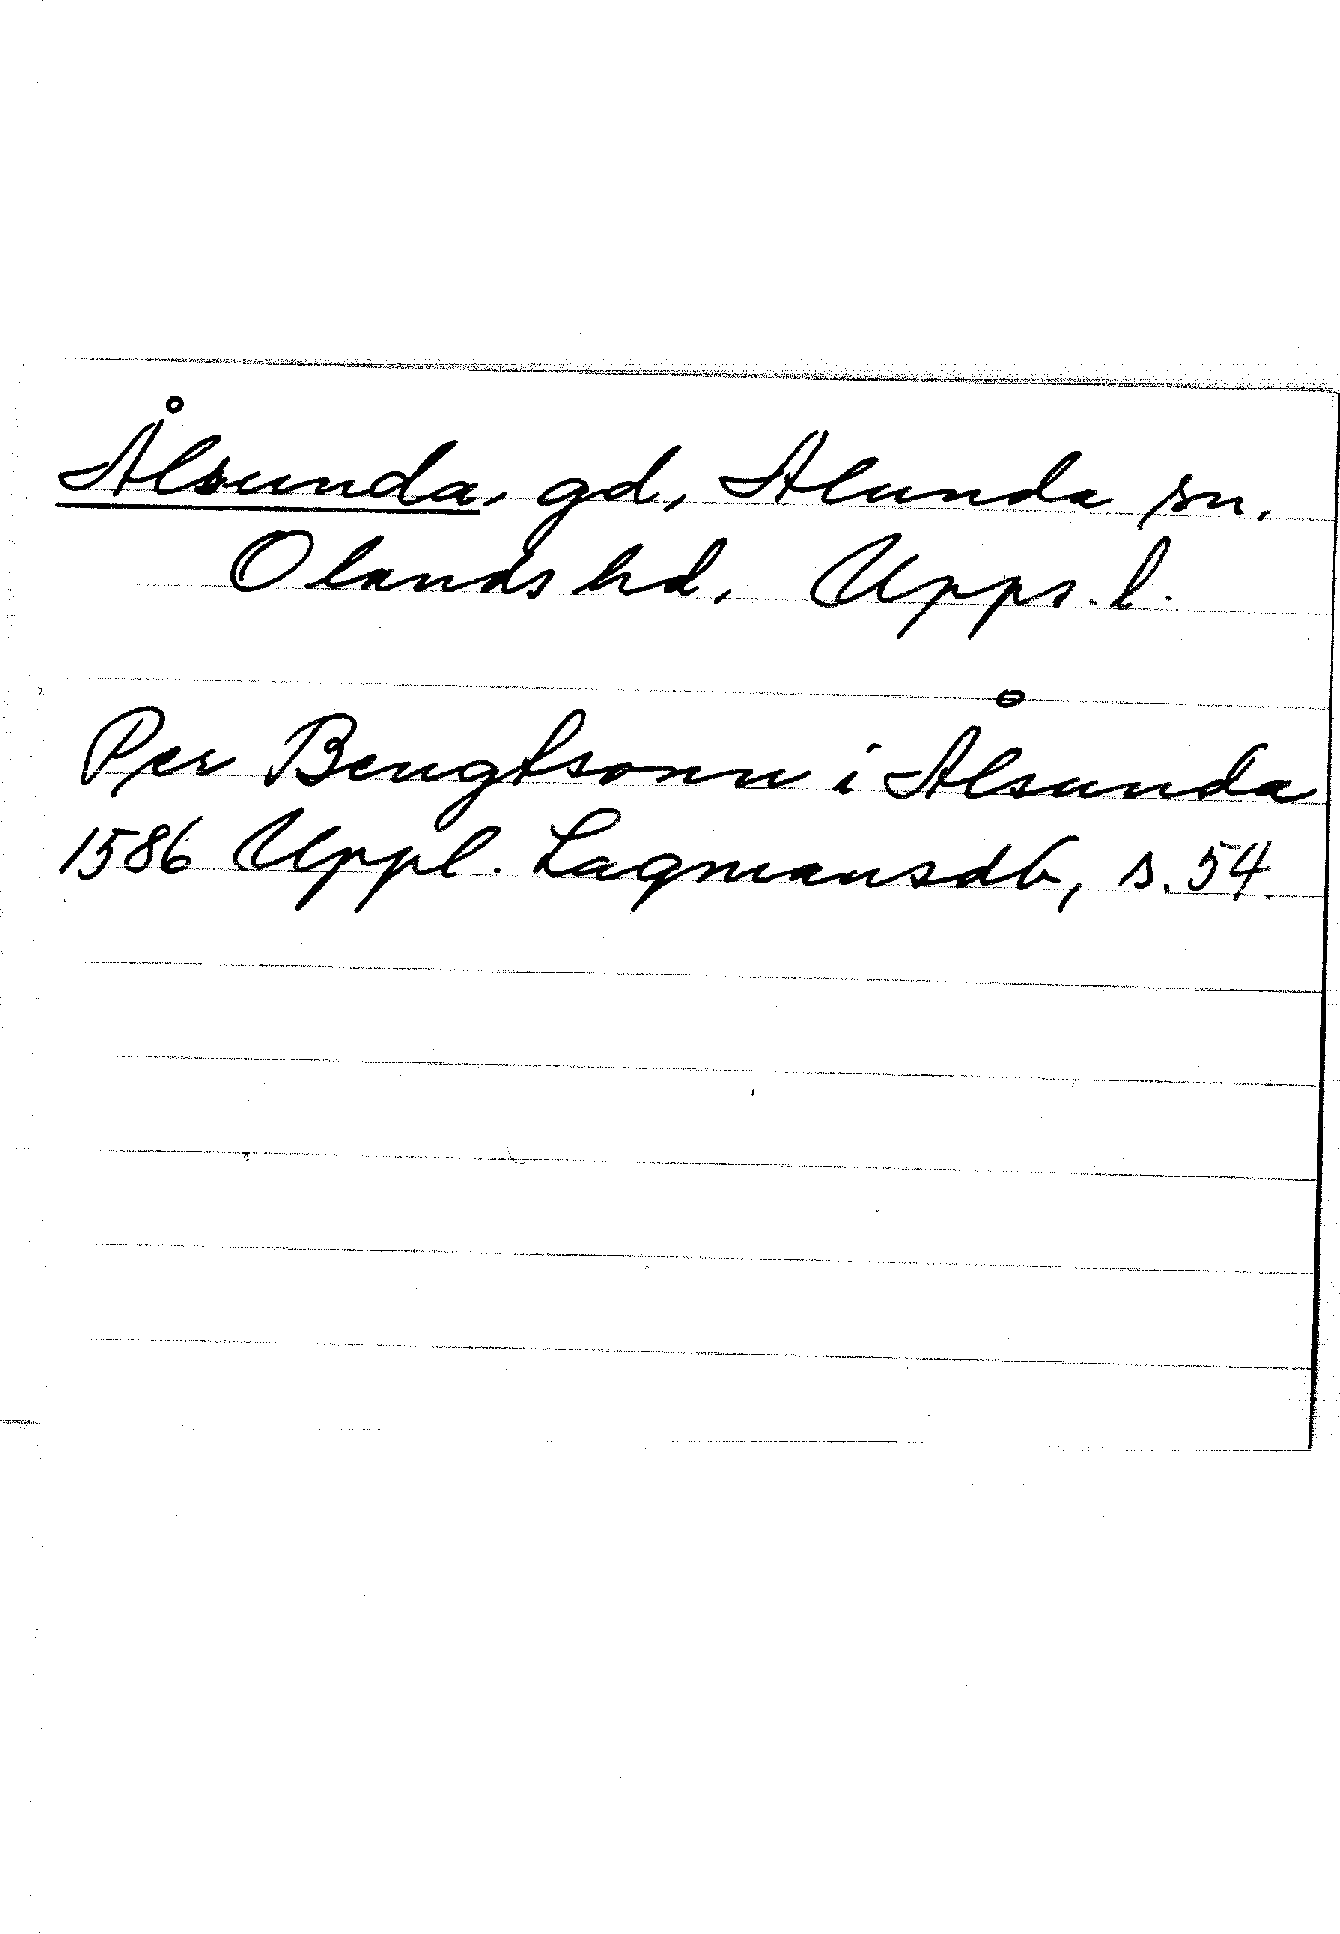 Ålsunda, gd, Alunda sn.
Olands hd. Upps. l.
Per Bengtsonn i Ålsunda
1586 Uppl. Lagmansdb, s. 54